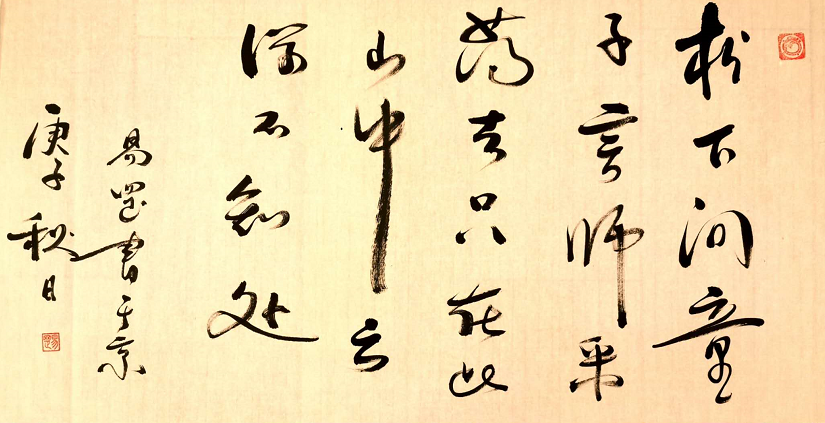 松下问童
子言师采
药去只在此
山中云
深不知处
易罡书于京
庚子秋日